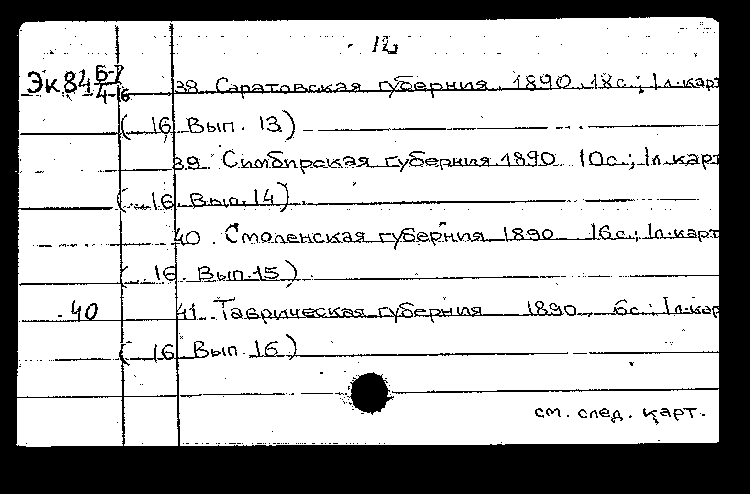 12
Эк84 Б-7/4-16 38. Саратовская губерния. 1890. 18с.; 1л.карт
(...16. Вып. 13)
39. Симбирская губерния. 1890 10с.; 1л.карт
(...16. Вып. 14)
40. Смоленская губерния 1890 16с.; 1л.карт
(...16. Вып. 15)
.40 41. Таврическая губерния 1890. 6с.; 1л.кар
(...16 Вып. 16)
см. след. карт.